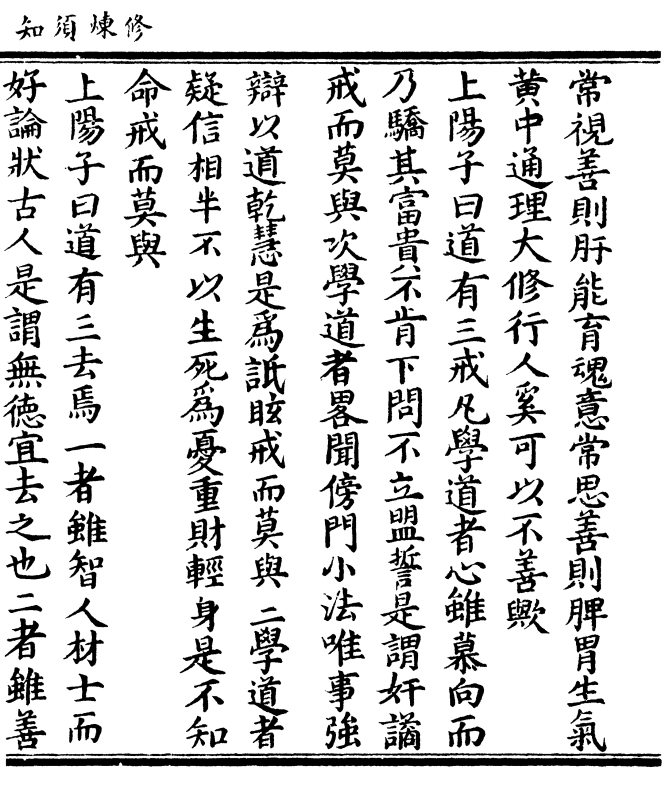 修煉須知
常視善則肝能育魂意常思善則脾胃生氣
黃中通理大修行人奚可以不善歟
上陽子曰道有三戒凡學道者心雖慕向而
乃驕其富貴不肯下問不立盟誓是謂奸譎
戒而莫與次學道者畧聞傍門小法唯事強
辯以道乾慧是爲詆眩戒而莫與二學道者
疑信相半不以生死爲憂重財輕身是不知
命戒而莫與
上陽子曰道有三去焉一者雖智人材士而
好論狀古人是謂無德宜去之也二者雖善